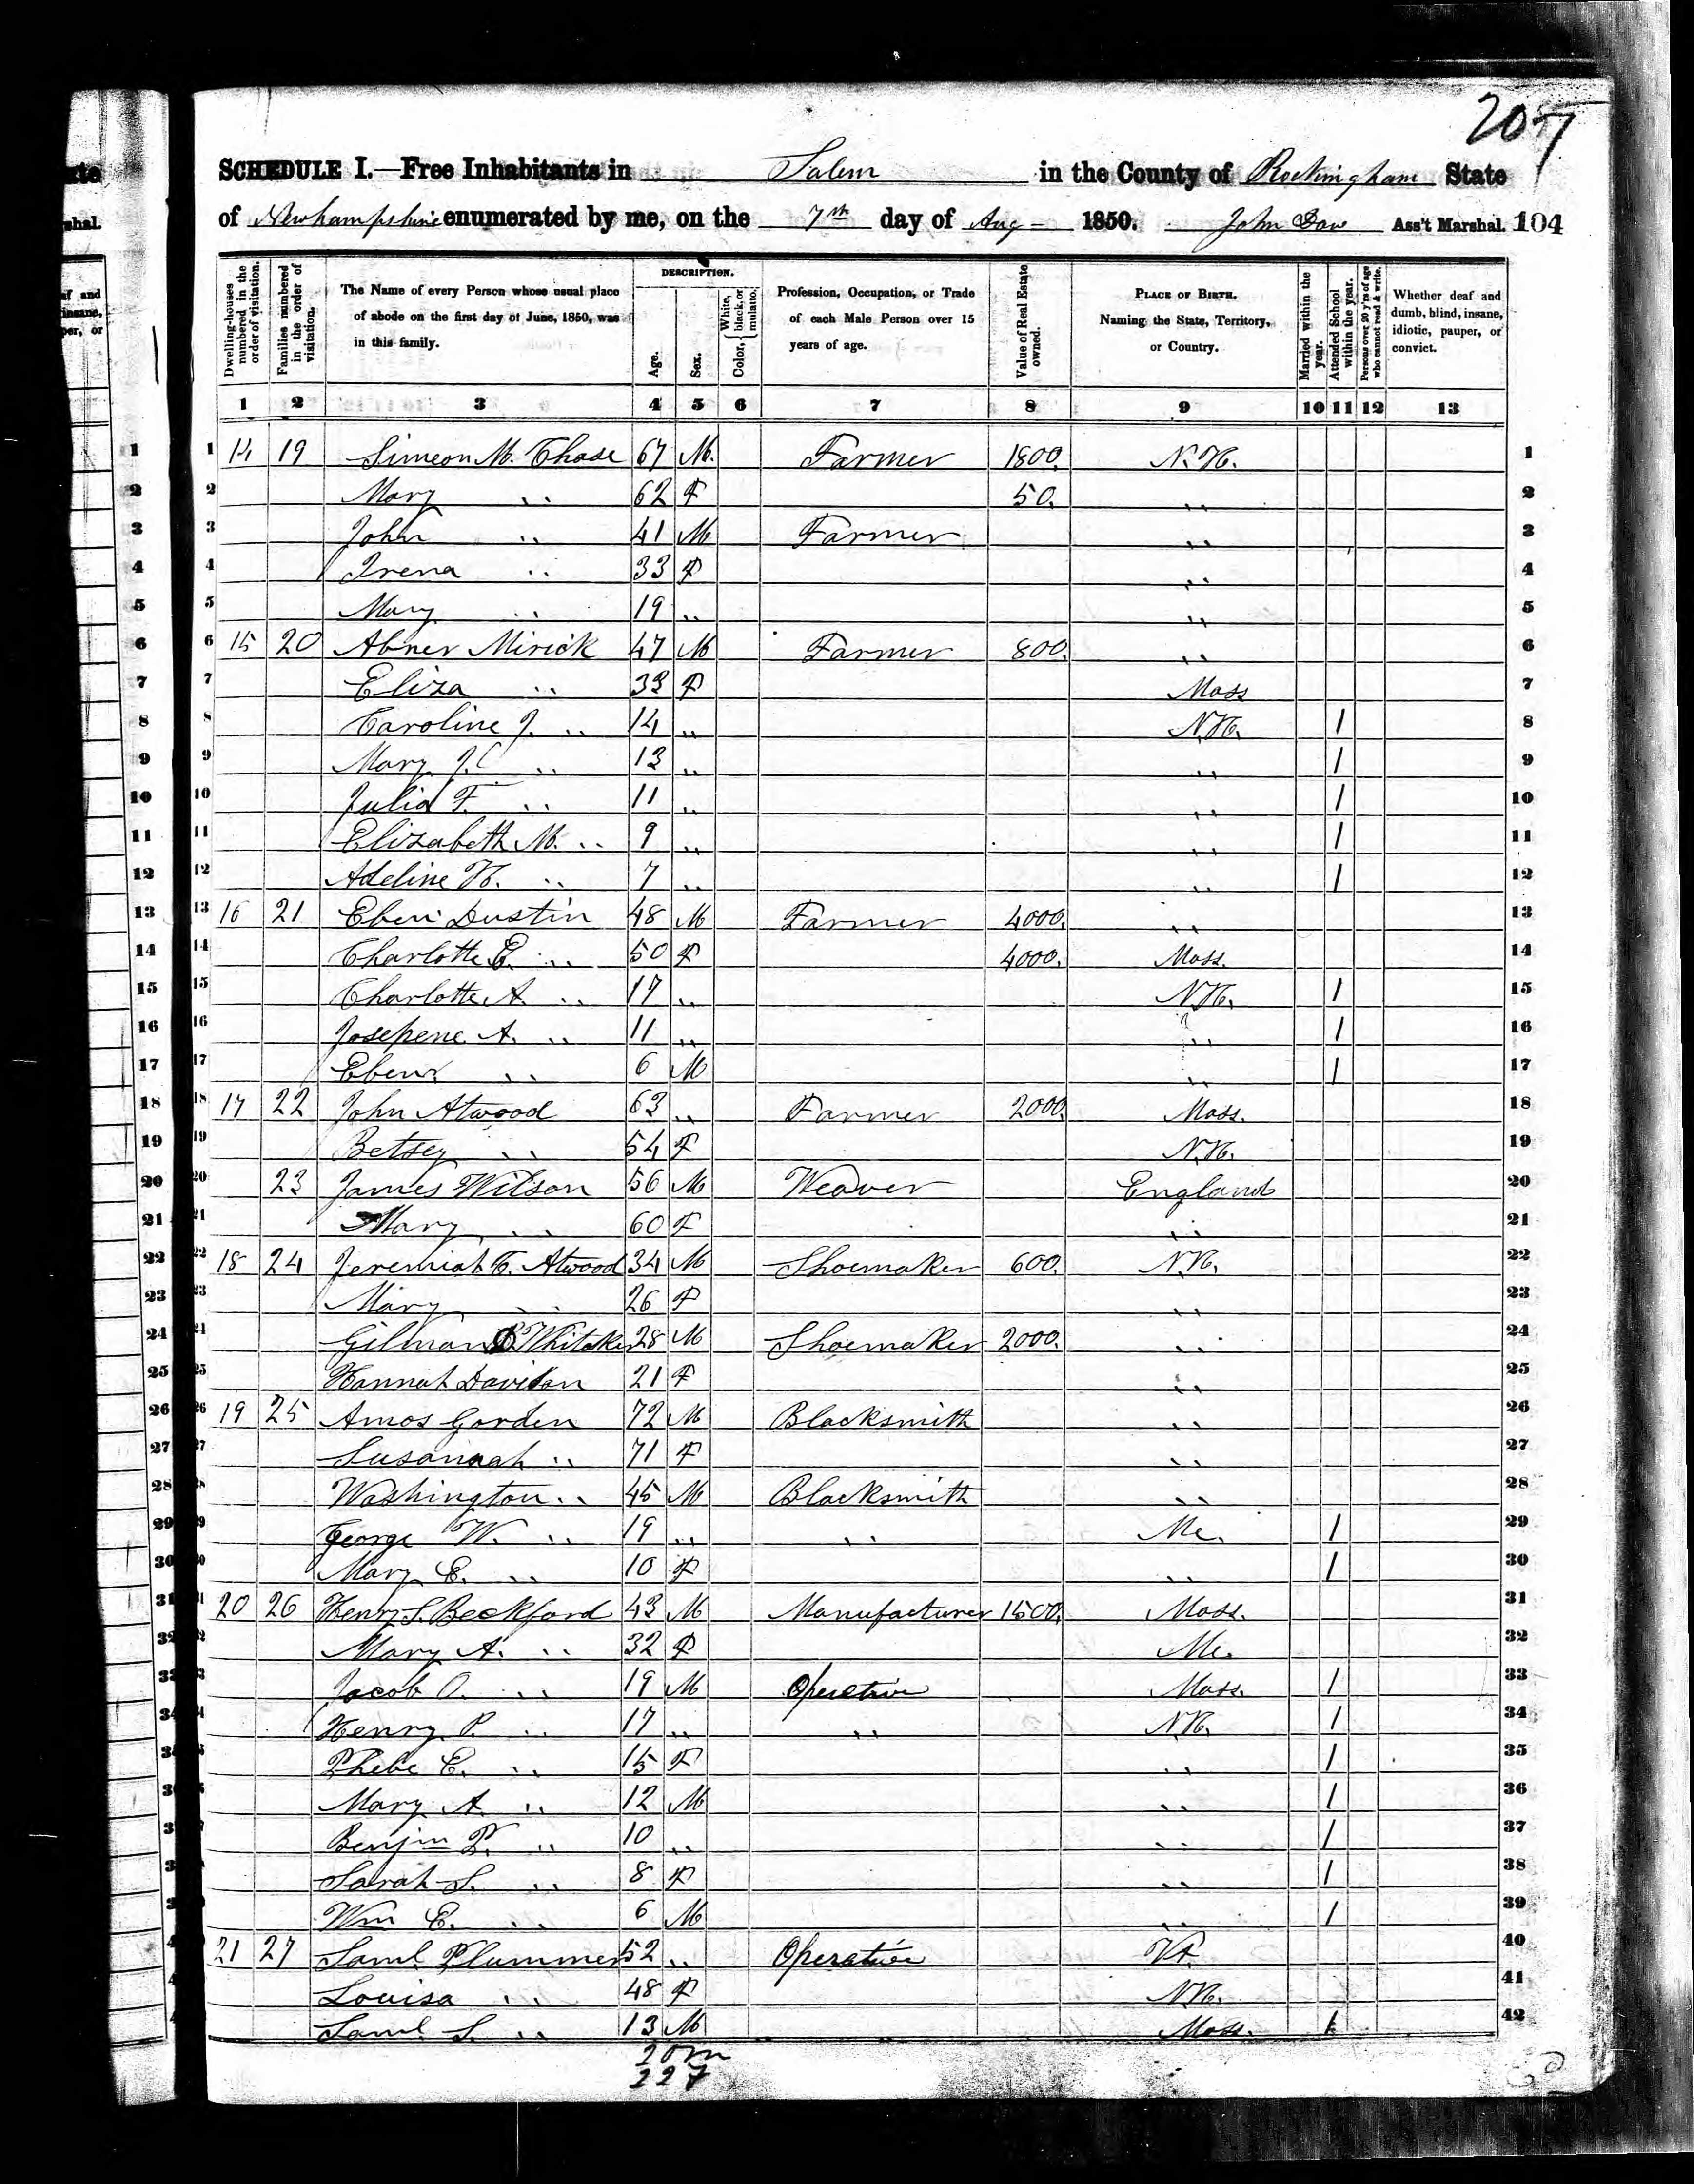 207
SCHEDULE I.—Free Inhabitants in Salem in the County of Rockingham State
of Newhampshire enumerated by me, on the 7th day of Aug 1850. John Ass't Marshal. 104
Dwelling-houses numbered in the order of visitation.
Families numbered in the order of visitation.
The Name of every Person whose usual place of abode on the first day of June, 1850, was in this family.
DESCRIPTION.
Age.
Sex.
Color, { White, black, or mulatto.
Profession, Occupation, or Trade of each Male Person over 15 years of age.
Value of Real Estate owned.
PLACE OF BIRTH. Naming the State, Territory, or Country.
Married within the year.
Attended School within the year.
Persons over 20 y'rs of age who cannot read & write.
Whether deaf and dumb, blind, insane, idiotic, pauper, or convict.
1 2 3 4 5 6 7 8 9 10 11 12 13
1 14 19 Simeon M. Chase 67 M. Farmer 1800. N.H. 1
2 Mary " 62 F 50. " 2
3 John " 41 M Farmer " 3
4 Irena " 33 F " 4
5 Mary " 19 " " 5
6 15 20 Abner Mirick 47 M Farmer 800. " 6
7 Eliza " 33 F Mass 7
8 Caroline J. " 14 " N.H. 1 8
9 Mary J. " 13 " " 1 9
10 Julia F. " 11 " " 1 10
11 Elizabeth M. " 9 " " 1 11
12 Adeline H. " 7 " " 1 12
13 16 21 Eben Dustin 48 M Farmer 4000. " 13
14 Charlotte E. " 50 F 4000. Mass. 14
15 Charlotte A. " 17 " N.H. 1 15
16 Josepene A. " 11 " " 1 16
17 Eben " 6 M " 1 17
18 17 22 John Atwood 63 " Farmer 2000. Mass. 18
19 Betsey " 54 F N.H. 19
20 23 James Wilson 56 M Weaver England 20
21 Mary " 60 F " 21
22 18 24 Jeremiah C. Atwood 34 M Shoemaker 600. N.H. 22
23 Mary " 26 F " 23
24 Gilman Whitaker 28 M Shoemaker 2000. " 24
25 Hannah Davison 21 F " 25
26 19 25 Amos Gorden 72 M Blacksmith " 26
27 Susannah " 71 F " 27
28 Washington " 45 M Blacksmith " 28
29 George W. " 19 " " Me. 1 29
30 Mary E. " 10 F " 1 30
31 20 26 Henry S. Beckford 43 M Manufacturer 1500. Mass. 31
32 Mary A. " 32 F Me. 32
33 Jacob O. " 19 M Operative Mass. 1 33
34 Henry P. " 17 " " N.H. 1 34
35 Phebe E. " 15 F " 1 35
36 Mary A. " 12 M " 1 36
37 Benjm P. " 10 " " 1 37
38 Sarah S. " 8 F " 1 38
39 Wm E. " 6 M " 1 39
40 21 27 Saml Plummer 52 " Operative Vt. 40
41 Louisa " 48 F N.H. 41
42 Saml S. " 13 M Mass. 1 42
20 m
22 F